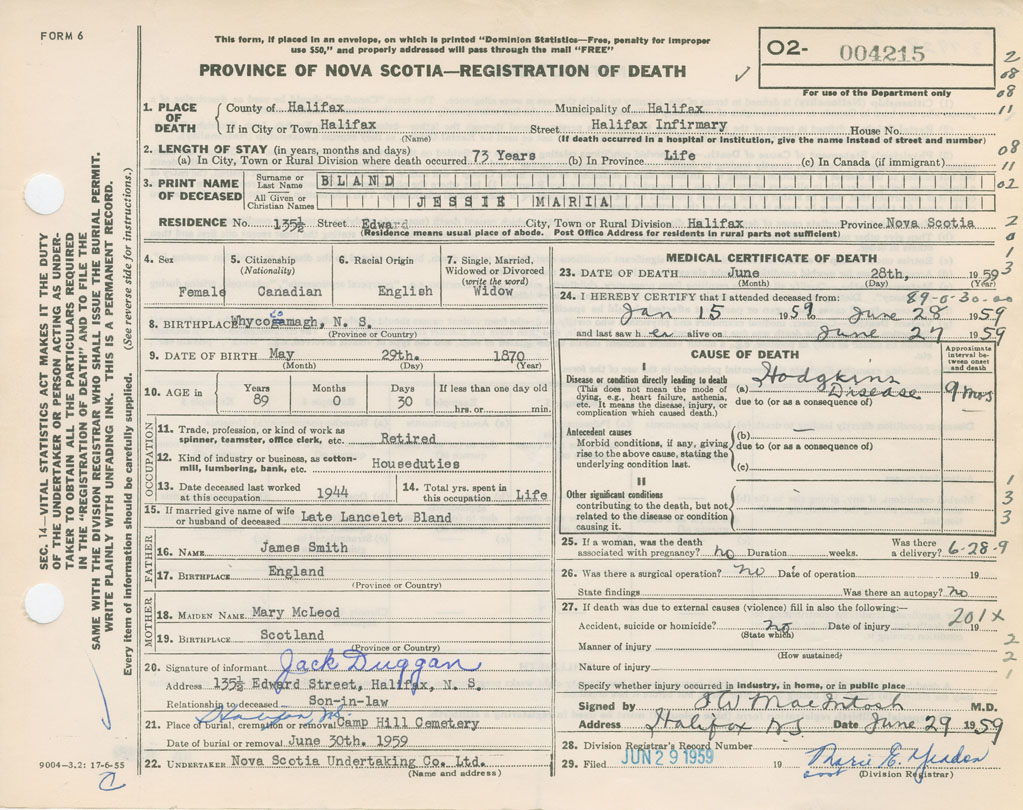 FORM 6
This form, if placed in an envelope, on which is printed "Dominion Statistics—Free, penalty for improper
use $50," and properly addressed will pass through the mail "FREE"
PROVINCE OF NOVA SCOTIA—REGISTRATION OF DEATH
O2- 004215
For use of the Department only
2
08
08
11
08
11
02
2
0
1
3
1. PLACE OF DEATH
County of Halifax Municipality of Halifax
If in City or Town Halifax Street Halifax Infirmary House No.
(Name) (If death occurred in a hospital or institution, give the name instead of street and number)
2. LENGTH OF STAY (in years, months and days)
(a) In City, Town or Rural Division where death occurred 73 Years (b) In Province Life (c) In Canada (if immigrant)
3. PRINT NAME OF DECEASED
Surname or Last Name BLAND
All Given or Christian Names JESSIE MARIA
RESIDENCE No. 135½ Street Edward City, Town or Rural Division Halifax Province Nova Scotia
(Residence means usual place of abode. Post Office Address for residents in rural parts not sufficient)
4. Sex
Female
5. Citizenship
(Nationality)
Canadian
6. Racial Origin
English
7. Single, Married,
Widowed or Divorced
(write the word)
Widow
8. BIRTHPLACE Whycogamagh, N. S.
co
(Province or Country)
9. DATE OF BIRTH May 29th. 1870
(Month) (Day) (Year)
10. AGE in
Years 89
Months 0
Days 30
If less than one day old
hrs. or min.
OCCUPATION
11. Trade, profession, or kind of work as
spinner, teamster, office clerk, etc. Retired
12. Kind of industry or business, as cotton-
mill, lumbering, bank, etc. Houseduties
13. Date deceased last worked
at this occupation 1944
14. Total yrs. spent in
this occupation Life
15. If married give name of wife
or husband of deceased Late Lancelet Bland
FATHER
16. NAME James Smith
17. BIRTHPLACE England
(Province or Country)
MOTHER
18. MAIDEN NAME Mary McLeod
19. BIRTHPLACE Scotland
(Province or Country)
20. Signature of informant Jack Duggan
Address 135½ Edward Street, Halifax, N. S.
Relationship to deceased Son-in-law
Halifax NS
21. Place of burial, cremation or removal Camp Hill Cemetery
Date of burial or removal June 30th. 1959
22. UNDERTAKER Nova Scotia Undertaking Co. Ltd.
(Name and address)
MEDICAL CERTIFICATE OF DEATH
23. DATE OF DEATH June 28th, 1959
(Month) (Day) (Year)
24. I HEREBY CERTIFY that I attended deceased from: 89-0-30-00
Jan 15 1959 to June 28 1959
and last saw her alive on June 27 1959
CAUSE OF DEATH
Approximate
interval be-
tween onset
and death
I
Disease or condition directly leading to death
(This does not mean the mode of
dying, e.g., heart failure, asthenia,
etc. It means the disease, injury, or
complication which caused death.)
(a) Hodgkins Disease
due to (or as a consequence of)
9 mos
Antecedent causes
Morbid conditions, if any, giving
rise to the above cause, stating the
underlying condition last.
(b) —
due to (or as a consequence of)
(c)
II
Other significant conditions
contributing to the death, but not
related to the disease or condition
causing it.
1
3
3
25. If a woman, was the death
associated with pregnancy? no Duration weeks.
Was there
a delivery? 6-28-9
26. Was there a surgical operation? no Date of operation 19
State findings Was there an autopsy? no
27. If death was due to external causes (violence) fill in also the following:—
201X
Accident, suicide or homicide? no Date of injury 19
(State which)
Manner of injury
(How sustained)
Nature of injury
2
2
1
Specify whether injury occurred in industry, in home, or in public place
Signed by MacIntosh M.D.
Address Halifax NS Date June 29 1959
28. Division Registrar's Record Number
29. Filed JUN 29 1959 19 Marie E.
(Division Registrar)
SEC. 14—VITAL STATISTICS ACT MAKES IT THE DUTY
OF THE UNDERTAKER OR PERSON ACTING AS UNDER-
TAKER TO OBTAIN ALL THE PARTICULARS REQUIRED
IN THE "REGISTRATION OF DEATH" AND TO FILE THE
SAME WITH THE DIVISION REGISTRAR WHO SHALL ISSUE THE BURIAL PERMIT.
WRITE PLAINLY WITH UNFADING INK. THIS IS A PERMANENT RECORD.
Every item of information should be carefully supplied. (See reverse side for instructions.)
9004-3.2: 17-6-55